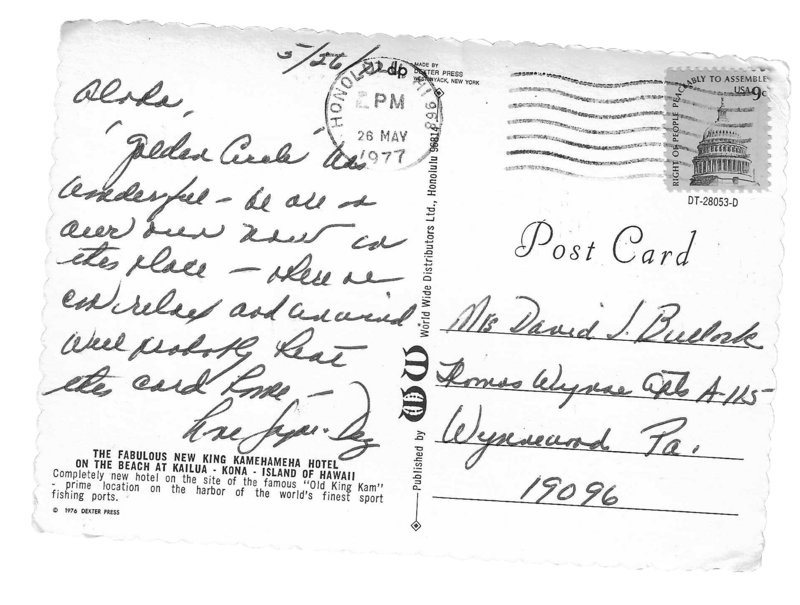 5/26/
Aloha,
"Golden Circle" was
wonderful – we are on
our own now in
this place – where we
can relax and unwind
Will probably beat
this card home –
Love
THE FABULOUS NEW KING KAMEHAMEHA HOTEL
ON THE BEACH AT KAILUA - KONA - ISLAND OF HAWAII
Completely new hotel on the site of the famous "Old King Kam"
- prime location on the harbor of the world's finest sport
fishing ports.
© 1976 DEXTER PRESS
MADE BY
DEXTER PRESS
WEST NYACK, NEW YORK
HONOLULU HI 968
PM
26 MAY
1977
Published by WW World Wide Distributors Ltd., Honolulu 96814
RIGHT OF PEOPLE PEACEABLY TO ASSEMBLE
USA 9c
DT-28053-D
Post Card
Mrs David J. Bullock
Thomas Wynne Apts A-115
Wynnewood Pa.
19096